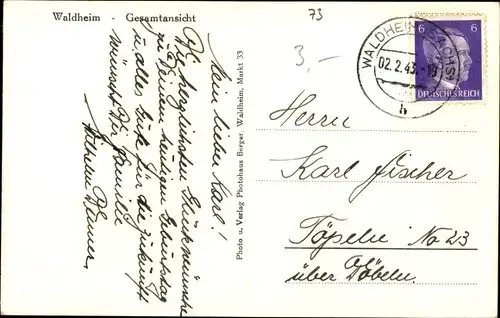 Waldheim - Gesamtansicht
73
3,-
WALDHEIM (SACHS)
02.2.43.-19
b
6 6
DEUTSCHES REICH
Mein lieber Karl!
Die herzlichsten Glückwünsche
zu Deinem heutigen Geburtstag
u. alles Gute für die Zukunft
wünscht Dir Familie
Wilhelm
Photo u. Verlag Photohaus Berger, Waldheim, Markt 33
Herrn
Karl Fischer
Töpeln No 23
über Döbeln.